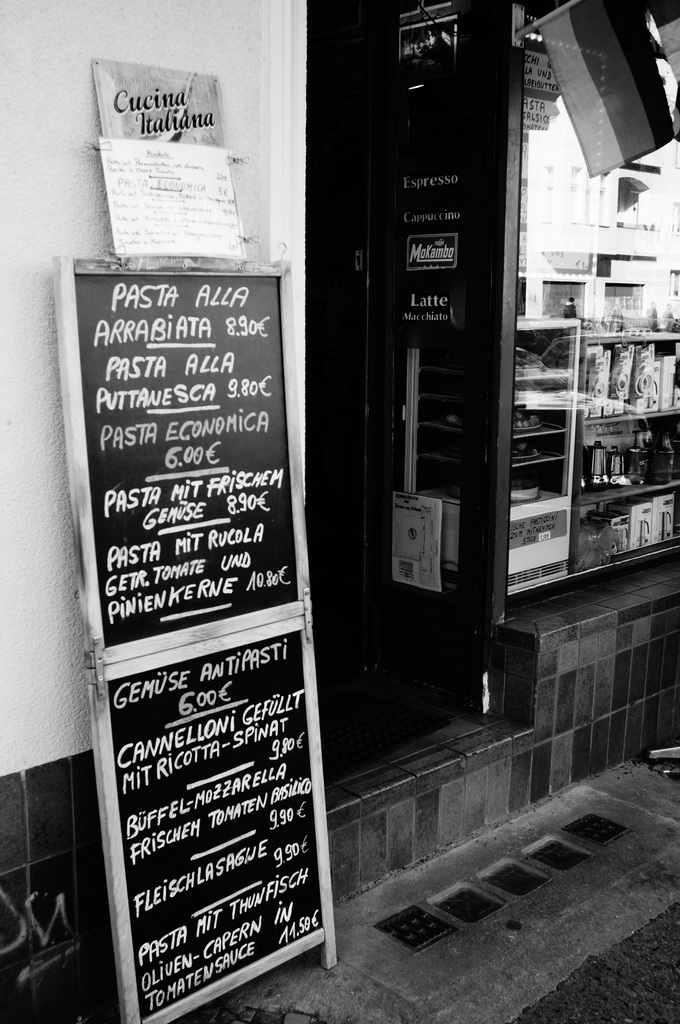 Cucina
Italiana
PASTA ECONOMICA
PASTA ALLA
ARRABIATA 8.90€
PASTA ALLA
PUTTANESCA 9.80€
PASTA ECONOMICA
6.00€
PASTA MIT FRISCHEM
GEMÜSE 8.90€
PASTA MIT RUCOLA
GETR. TOMATE UND
PINIENKERNE 10.80€
GEMÜSE ANTIPASTI
6.00€
CANNELLONI GEFÜLLT
MIT RICOTTA-SPINAT
9.80€
BÜFFEL-MOZZARELLA
FRISCHEM TOMATEN BASILICO
9.90€
FLEISCHLASAGNE 9.90€
PASTA MIT THUNFISCH
OLIVEN-CAPERN IN
TOMATENSAUCE 11.50€
Espresso
Cappuccino
MoKambo
Latte
Macchiato
LA UND
PASTA
SALSICC
TOMATEN
ZUM MITNEHMEN